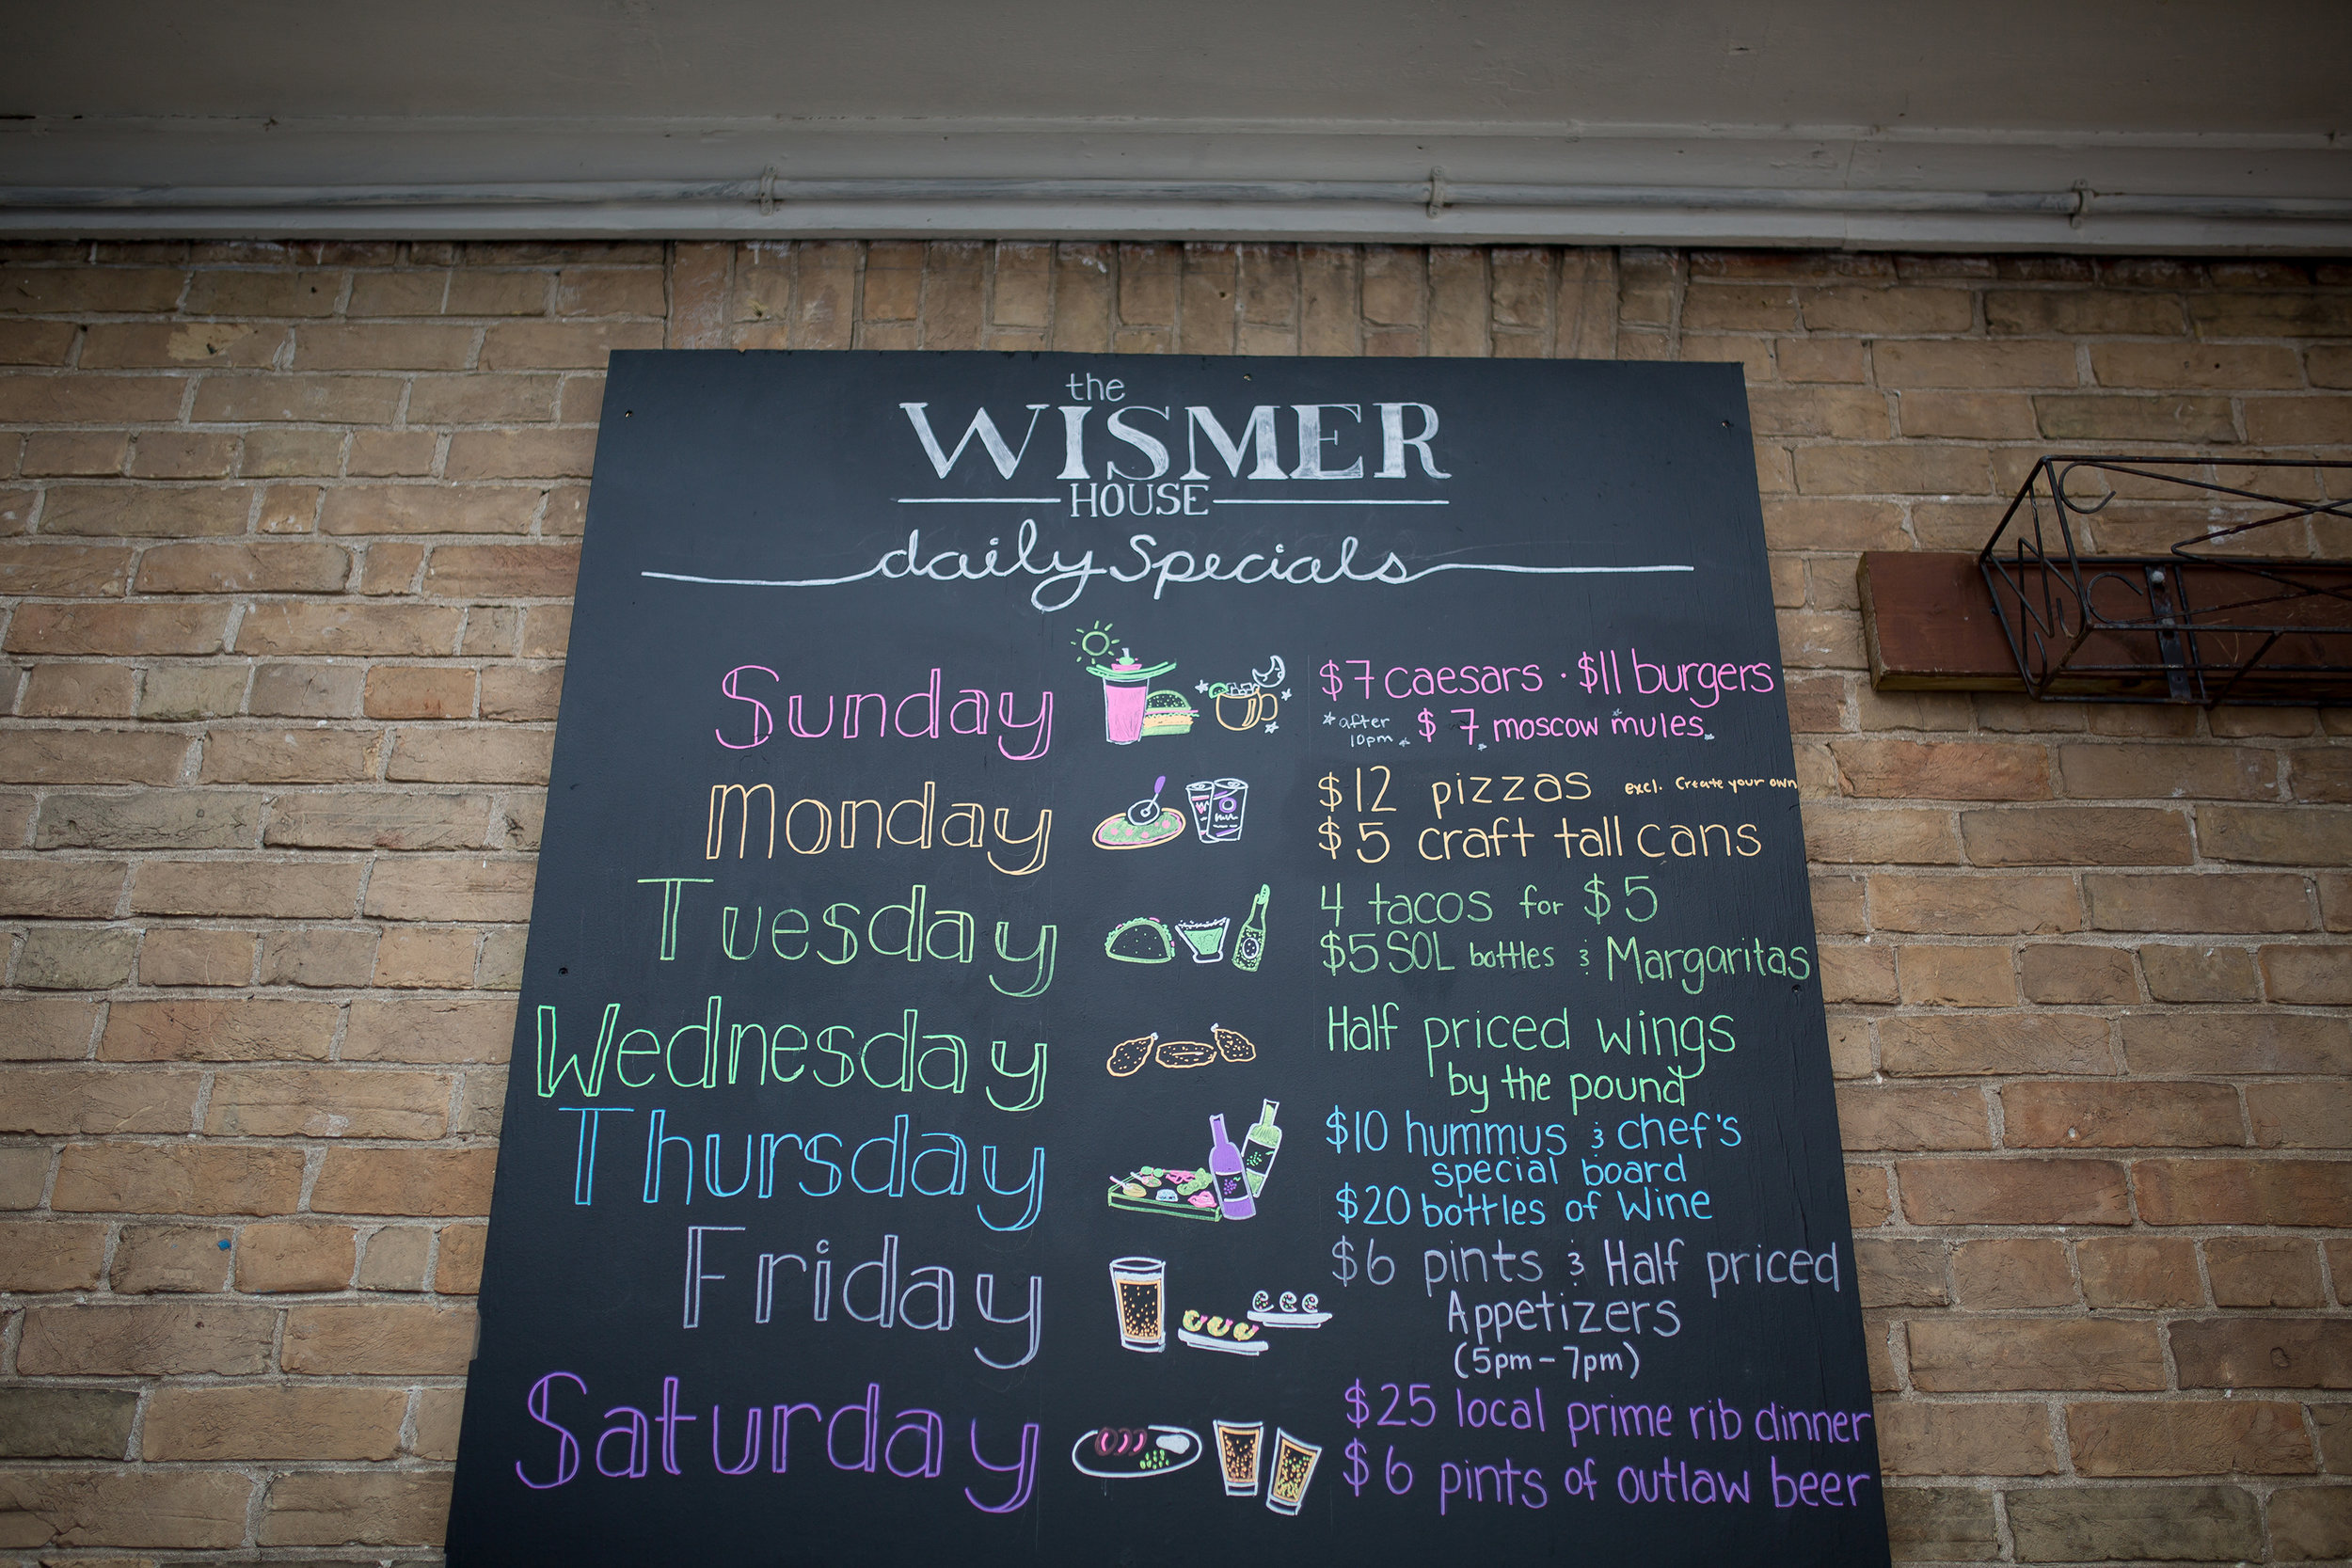 the
WISMER
HOUSE
daily Specials
Sunday
$7 caesars · $11 burgers
*after 10pm* $7 moscow mules
Monday
$12 pizzas excl. Create your own
$5 craft tall cans
Tuesday
4 tacos for $5
$5 SOL bottles & Margaritas
Wednesday
Half priced wings
by the pound
Thursday
$10 hummus & chef's
special board
$20 bottles of Wine
Friday
$6 pints & Half priced
Appetizers
(5pm - 7pm)
Saturday
$25 local prime rib dinner
$6 pints of outlaw beer